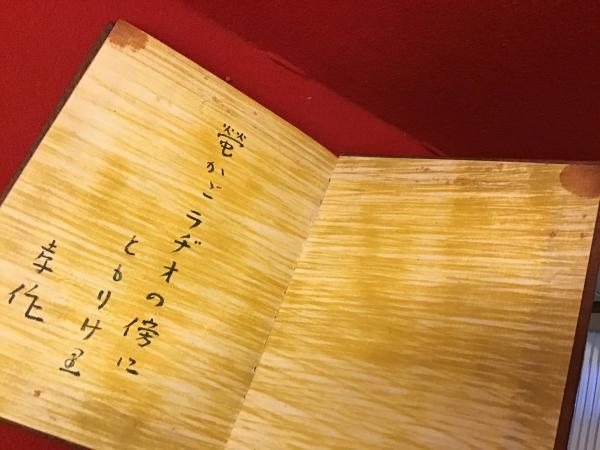 螢かごラヂオの傍に
ともりけ里
孝作